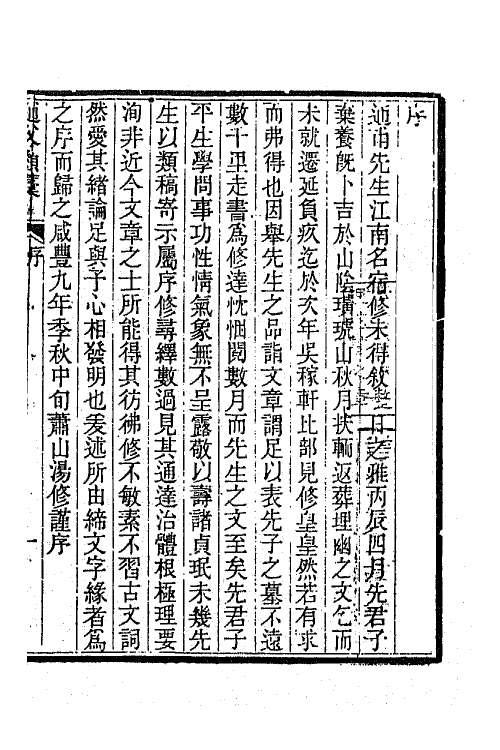 序
逌甫先生江南名宿修未得敘日之雅丙辰四月先君子
棄養旣卜吉於山陰璜琥山秋月扶輀返葬埋幽之文乞而
未就遷延負疚迄於次年吳稼軒比部見修皇皇然若有求
而弗得也因舉先生之品詣文章謂足以表先子之墓不遠
數十里走書爲修達忱悃閱數月而先生之文至矣先君子
平生學問事功性情氣象無不呈露敬以壽諸貞珉未幾先
生以類稿寄示屬序修尋繹數過見其通達治體根極理要
洵非近今文章之士所能得其彷彿修不敏素不習古文詞
然愛其緒論足與予心相發明也爰述所由締文字緣者爲
之序而歸之咸豐九年季秋中旬蕭山湯修謹序
序
一